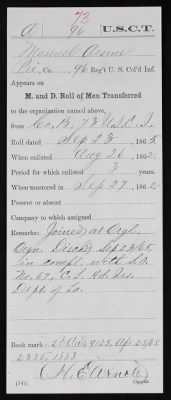 73
a 96 U.S.C.T.
Manuel Arsine
Pvt., Co. , 96 Reg't U. S. Col'd Inf.
Appears on
M. and D. Roll of Men Transferred
to the organization named above,
from Co. B, 73 U.S.C.I.
Roll dated Sep 23, 1865.
When enlisted Aug 26, 1862.
Period for which enlisted 3 years.
When mustered in Sep 27, 1862
Present or absent
Company to which assigned
Remarks: Joined at Orgl.
Orgn. Disch'd Sep 23/65,
in compl. with S.O.
No. 63, C.S. Hd. Qrs.
Dept. of La.
Book mark:
2335. 1883
H E Arnold
(543) Copyist.